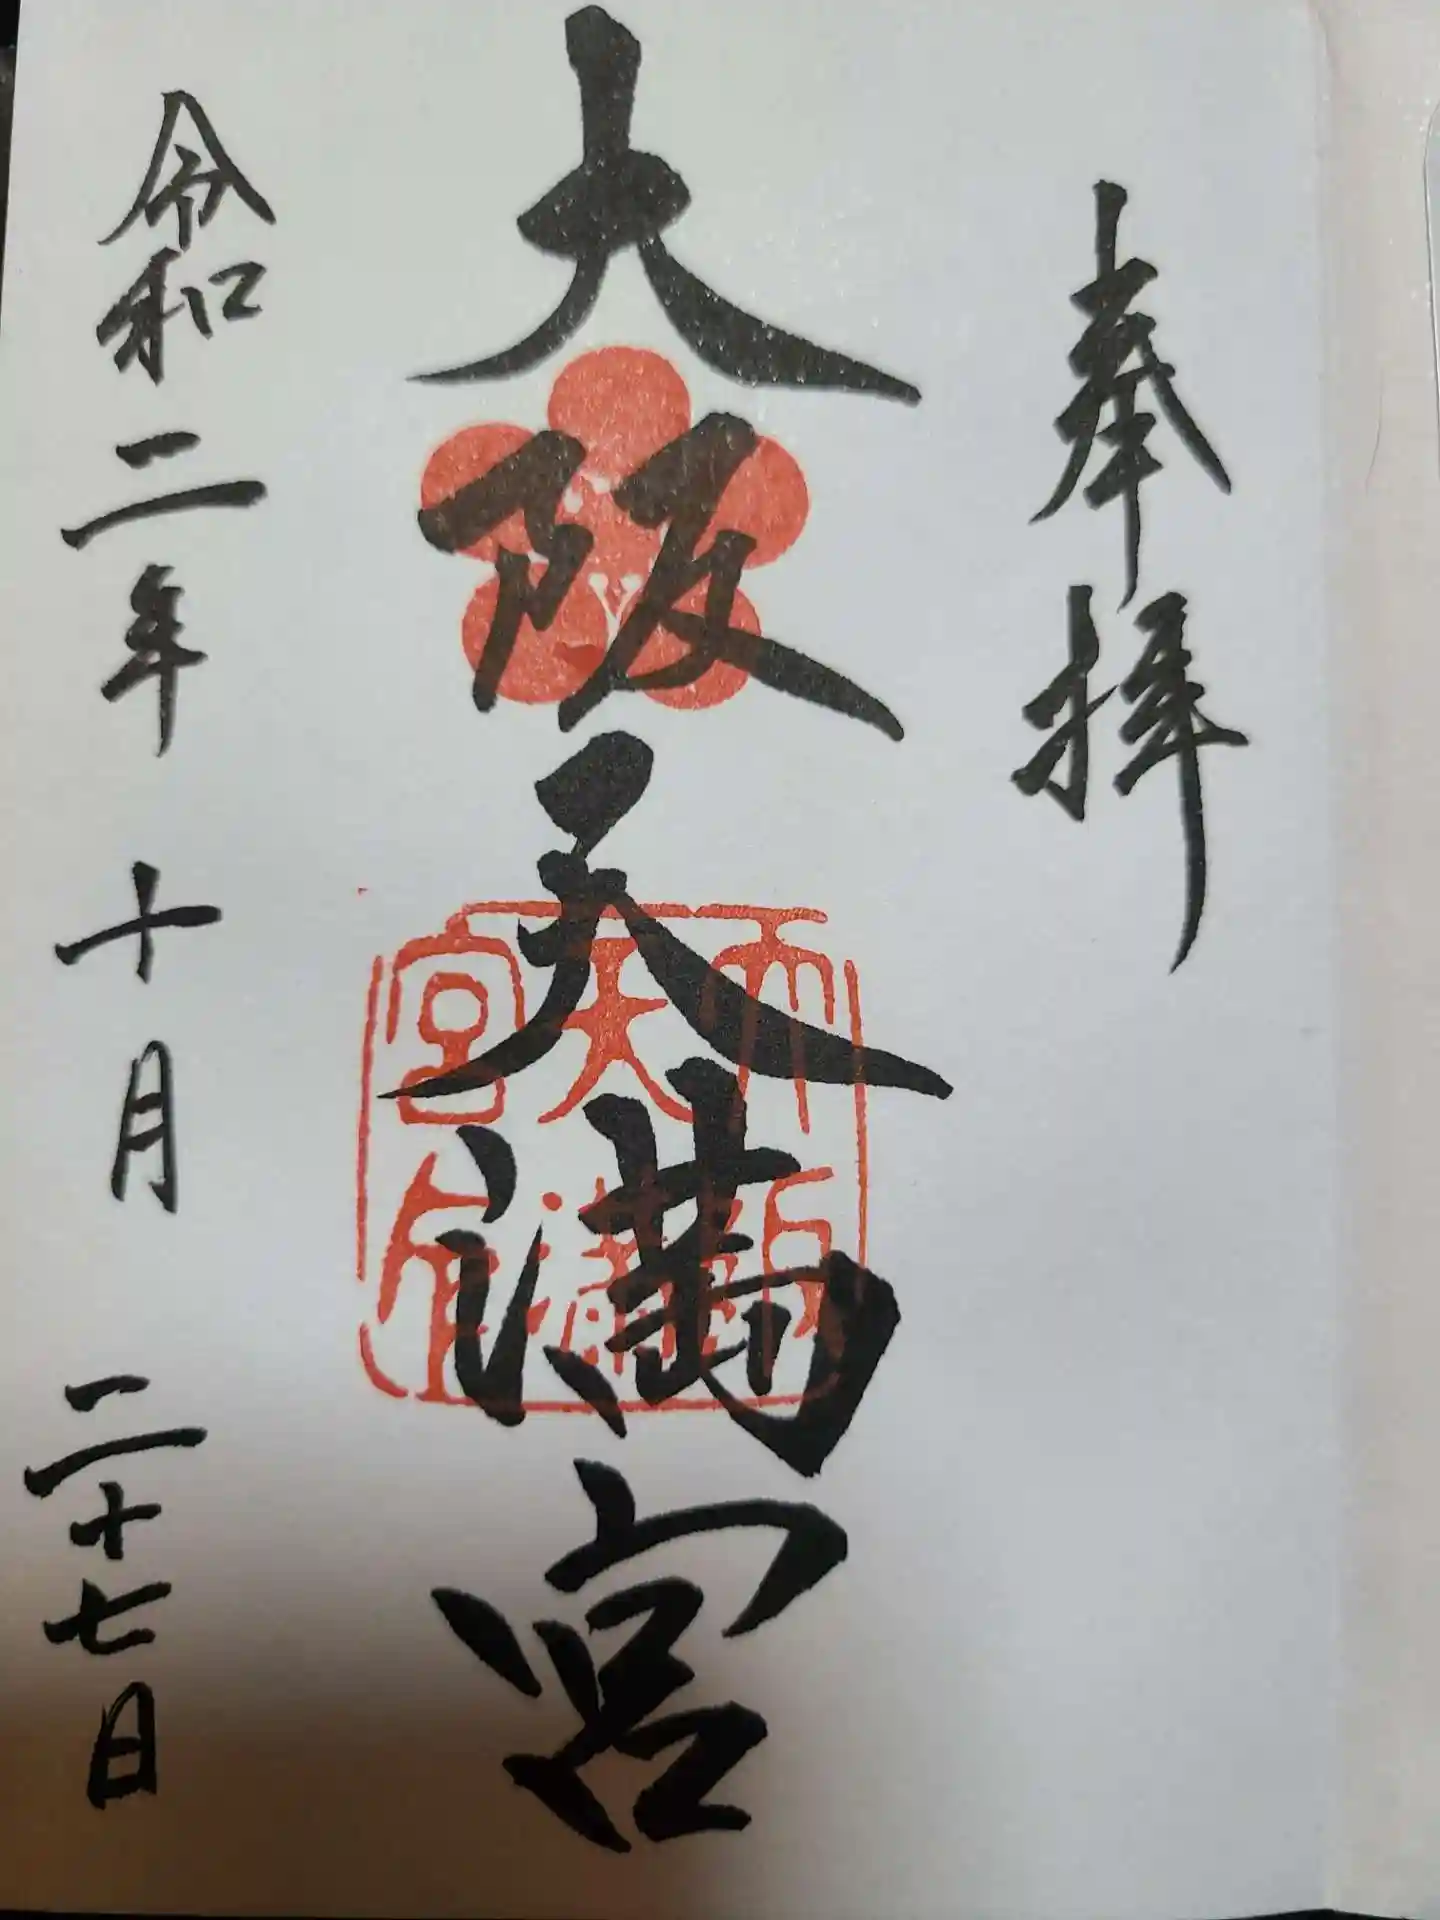 奉拝
大阪天満宮
令和二年 十月 二十七日
大阪
天満
宮印